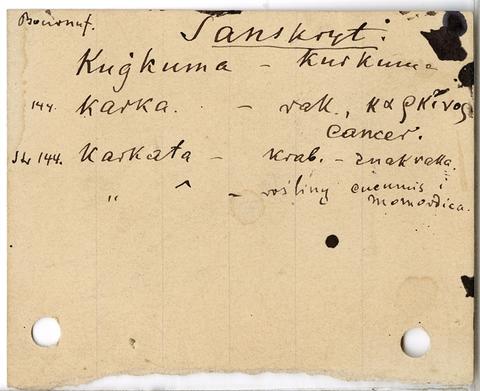 Sanskryt:
Kuģkuma - kurkuma
144. Karka. - rak, καρκίνος
cancer.
Str 144. Karkata - krab. - znak raka.
" ^ - rośliny cucumis i
Momordica.